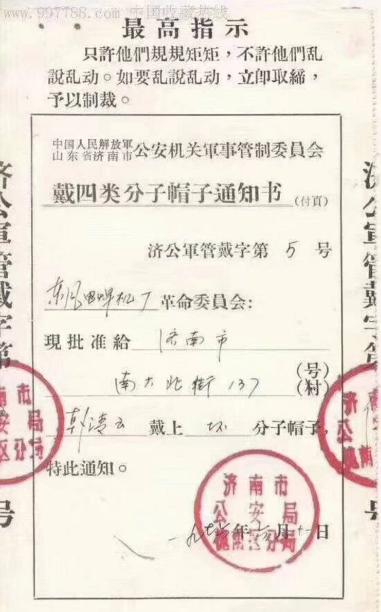 www.997788.com 中国收藏热线
最高指示
只許他們規規矩矩，不許他們乱
說乱动。如要乱說乱动，立卽取締，
予以制裁。
中国人民解放軍
山东省济南市
公安机关軍事管制委員会
戴四类分子帽子通知书（付頁）
济公軍管戴字第 5 号
东风电焊机厂革命委員会：
現批准給 济南市
南大北街137（号）（村）
清云 戴上 坏 分子帽子，
特此通知。
济南市
公安局
年 月 日
济公軍管戴字第
号
济公軍管戴字第
号
市
局
分局
济
公